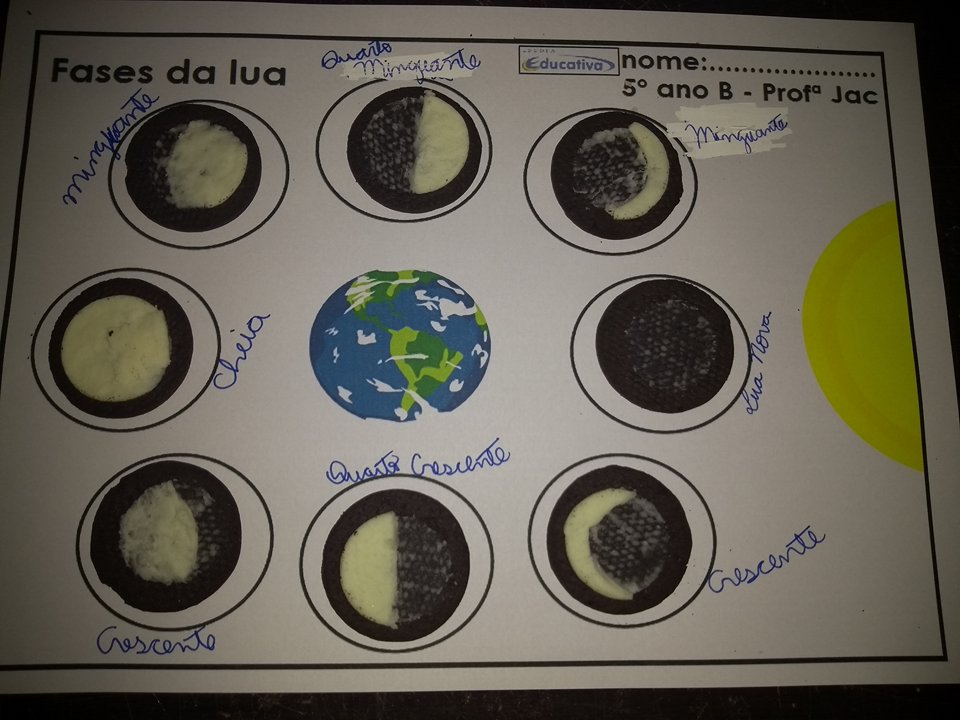 Fases da lua
Quarto
Minguante
Educativa
nome:......................
5º ano B - Profª Jac
Minguante
Minguante
Cheia
Lua Nova
Quarto Crescente
Crescente
Crescente